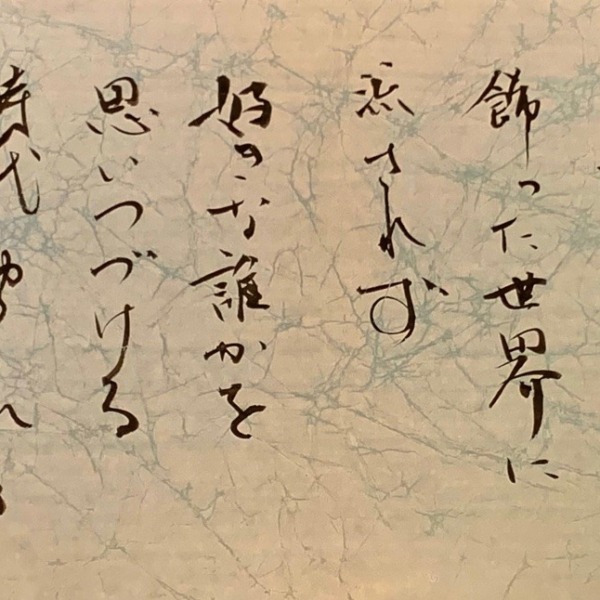 飾った世界に
流されず
好きな誰かを
思いつづける
時代